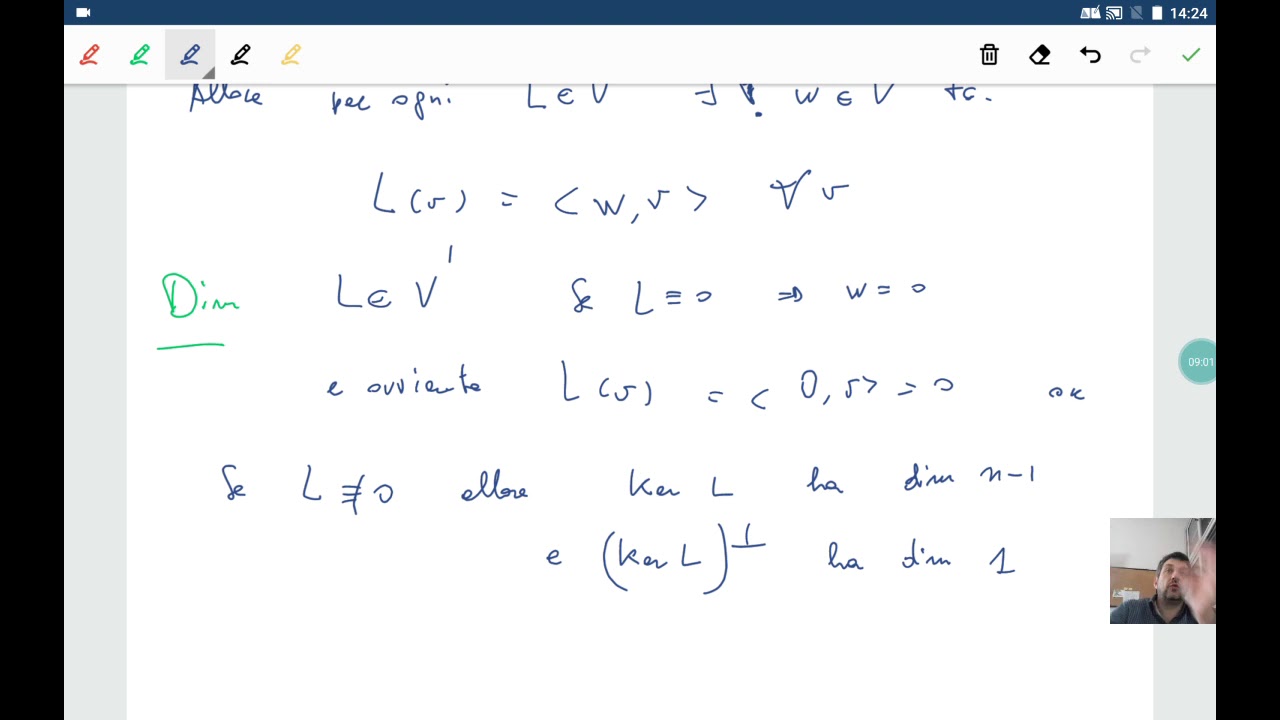 14:24
Allora per ogni L ∈ V ∃ ! w ∈ V t.c.
L(v) = < w, v > ∀ v
Dim L ∈ V' Se L ≡ 0 ⇒ w = 0
09:01
e ovviamente L(v) = < 0, v > = 0 ok
Se L ≢ 0 allora Ker L ha dim n-1
e (Ker L)^⊥ ha dim 1